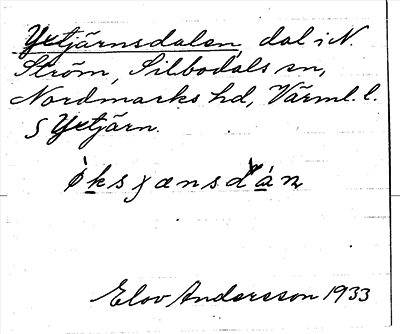 Yxtjärnsdalen, dal i N.
Ström, Silbodals sn,
Nordmarks hd, Värml. l.
S Yxtjärn.
Elov Andersson 1933